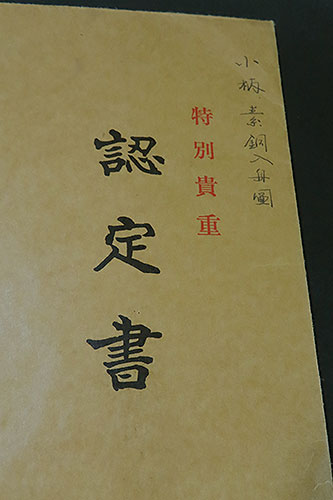 小柄 素銅入舟図
特別貴重
認定書